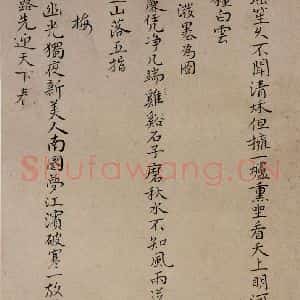 笙久不聞清妹但擁一爐熏坐看天上明河
種白雲
潑墨為圖
塵凭淨几端雞谿石子磨秋水不知風雨送
山落五指
梅
逃光獨夜新美人南國夢江濱破寒一放
路先迎天下春
Shufawang.CN